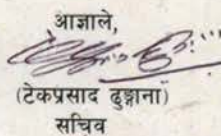 आज्ञाले,
(टेकप्रसाद ढुङ्गाना)
सचिव